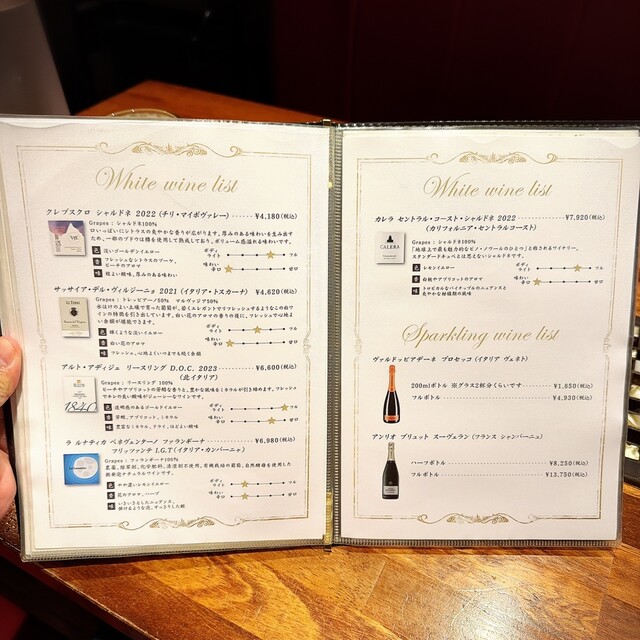 White wine list
クレプスクロ シャルドネ 2022 (チリ・マイポヴァレー) …… ¥4,180(税込)
Grapes : シャルドネ100%
口いっぱいにシトラスの爽やかな香りが広がります。厚みのある味わいを生み出す
ため、一部のブドウは樽を使用して熟成しており、ボリューム感溢れる味わいです。
色 淡いゴールデンイエロー
香 フレッシュなシトラスのブーケ、
ピーチのアロマ
味 程よい酸味、厚みのある味わい
ボディ
ライト フル
味わい
辛口 甘口
サッサイア・デル・ヴィルジーニョ 2021 (イタリア・トスカーナ) ¥4,620(税込)
Grapes : トレッビアーノ50% マルヴァジア50%
色 輝くような淡いイエロー
香 白い花のアロマ
味 フレッシュ、心地よくいつまでも続く余韻
ボディ
ライト フル
味わい
辛口 甘口
アルト・アディジェ リースリング D.O.C. 2023 …… ¥6,600(税込)
(北イタリア)
Grapes : リースリング 100%
ピーチやアプリコットの芳醇な香りと、豊かな風味をミネラルが引き締めます。フレッシュ
で辛口の良い酸味がジューシーなワインです。
1840
色 透明感のあるゴールドイエロー
香 芳醇、アプリコット、ミネラル
味 豊富なミネラル、ドライ、ほどよい酸味
ボディ
ライト フル
味わい
辛口 甘口
ラ ルナティカ ベネヴェンターノ ファランギーナ …… ¥6,980(税込)
フリッツァンテ I.G.T(イタリア・カンパーニャ)
Grapes : ファランギーナ100%
農薬、除草剤、化学肥料、清澄剤不使用、有機栽培の葡萄、自然酵母を使用した
微発泡ナチュラルワインです。
色 やや濃いレモンイエロー
香 花のアロマ、ハーブ
味 いきいきとしたニュアンス、
弾けるような泡、すっきりした酸
ボディ
ライト フル
味わい
辛口 甘口
White wine list
カレラ セントラル・コースト・シャルドネ 2022 …… ¥7,920(税込)
(カリフォルニア・セントラルコースト)
CALERA
Grapes : シャルドネ100%
「地球上で最も魅力的なピノ・ノワールのひとつ」と称されるワイナリー。
スタンダードキュベとは思えないシャルドネです。
色 レモンイエロー
香 白桃やアプリコットのアロマ
味 トロピカルなパイナップルのニュアンスと
爽やかな柑橘類の風味
ボディ
ライト フル
味わい
辛口 甘口
Sparkling wine list
ヴァルドッビアデーネ プロセッコ (イタリア ヴェネト)
200mlボトル ※グラス2杯分くらいです …… ¥1,650(税込)
フルボトル …… ¥4,930(税込)
アンリオ ブリュット スーヴェラン (フランス シャンパーニュ)
ハーフボトル …… ¥8,250(税込)
フルボトル …… ¥13,750(税込)